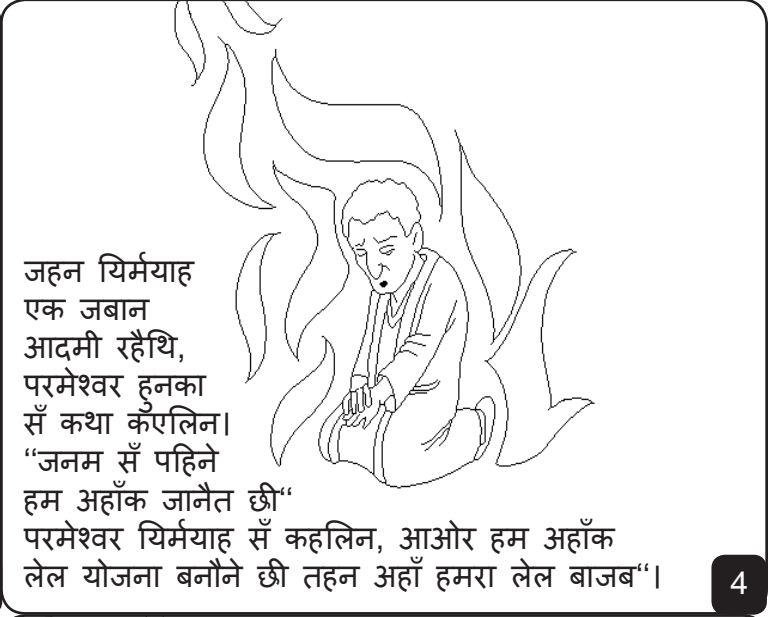 जहन यिर्मयाह
एक जबान
आदमी रहैथि,
परमेश्वर हुनका
सँ कथा कएलिन।
“जनम सँ पहिने
हम अहाँक जानैत छी“
परमेश्वर यिर्मयाह सँ कहलिन, आओर हम अहाँक
लेल योजना बनौने छी तहन अहाँ हमरा लेल बाजब“।
4